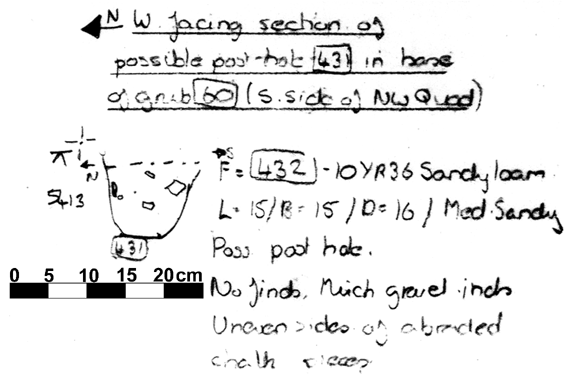 N W. facing section of
possible post-hole 431 in base
of grub 60 (S. side of NW Quad)
N
S
5413
431
F = 432 - 10YR36 Sandy loam
L = 15 / B = 15 / D = 16 / Med. Sandy
Poss post hole.
No finds, Much gravel incls
Uneven sides of abraded
chalk pieces
0 5 10 15 20 cm